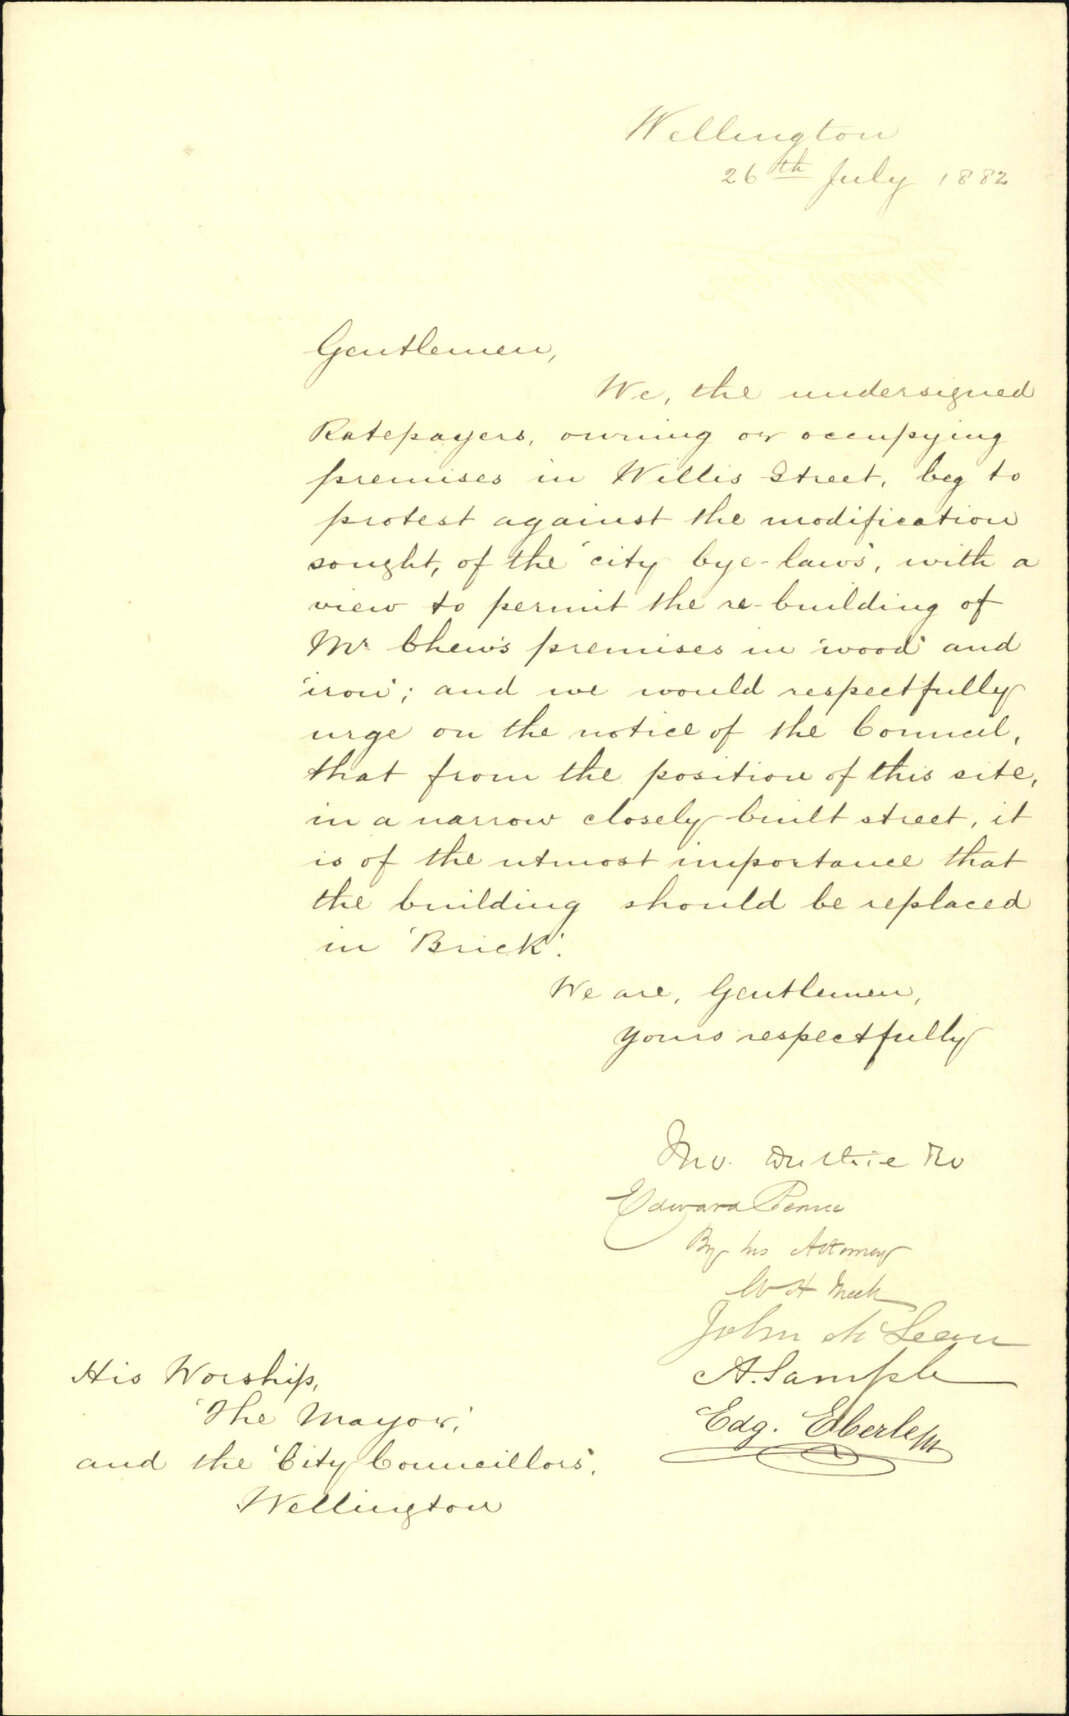 Wellington
26th July 1882
Gentlemen,
We, the undersigned
Ratepayers, owning or occupying
premises in Willis Street, beg to
protest against the modification
sought, of the 'city bye-laws', with a
view to permit the re-building of
Mr Chew's premises in 'wood' and
'iron'; and we would respectfully
urge on the notice of the Council,
that from the position of this site,
in a narrow closely built street, it
is of the utmost importance that
the building should be replaced
in 'Brick'.
We are, Gentlemen,
Yours respectfully
Jno. Duthie & Co
Edward Pearce
By his Attorney
W H Meek
John McLean
A. Sample
Edg.
His Worship,
'The Mayor',
and the 'City Councillors'.
Wellington